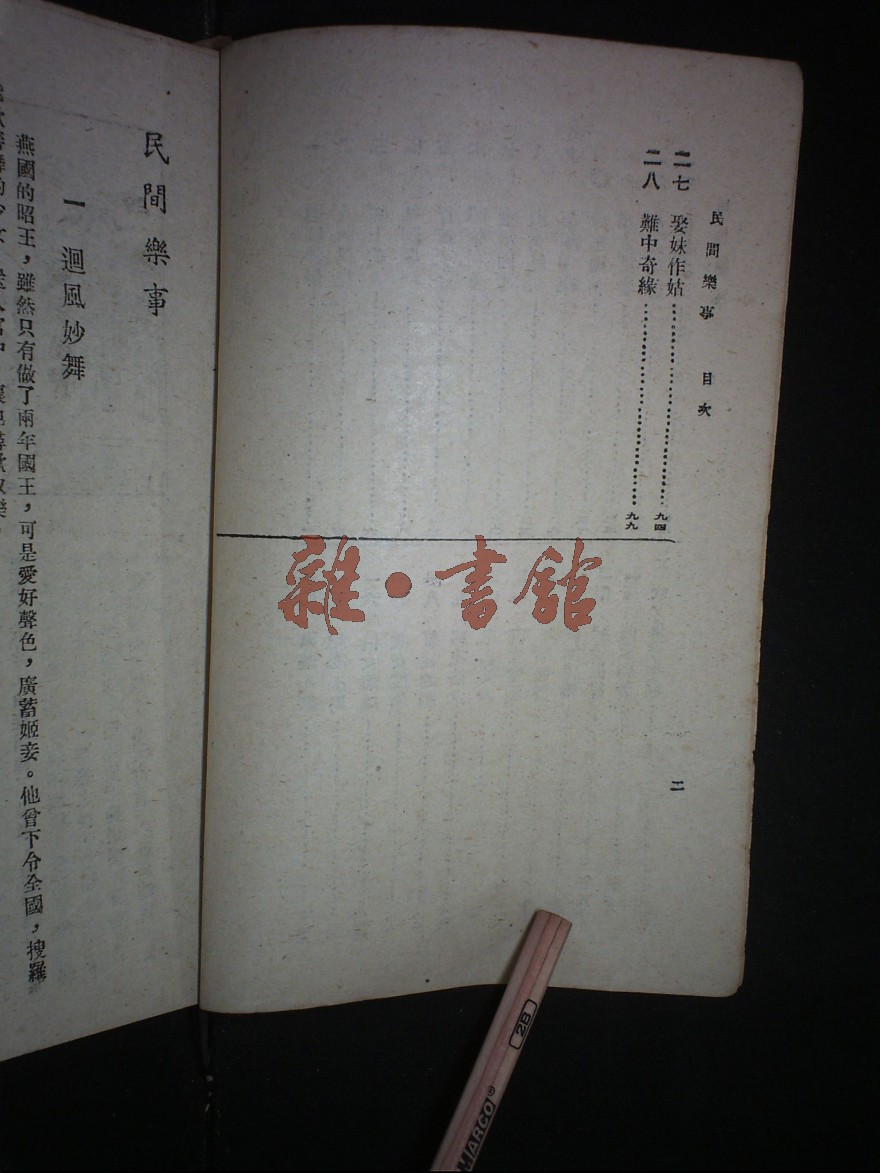 民間樂事 目次
二七 娶妹作姑……………………九四
二八 難中奇緣……………………九九
二
民間樂事
一 迴風妙舞
燕國的昭王，雖然只有做了兩年國王，可是愛好聲色，廣蓄姬妾。他曾下令全國，搜羅
雜·書館
2B
MARCO®